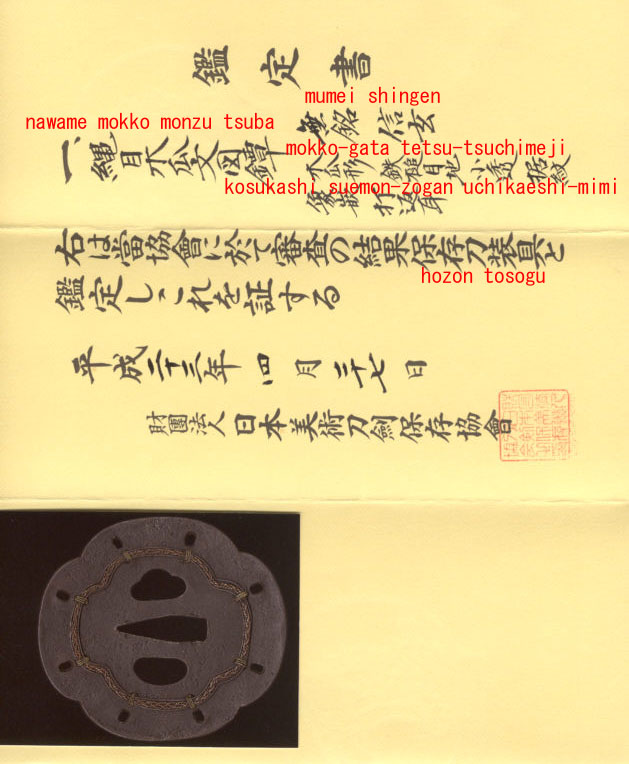 鑑定書
mumei shingen
無銘 信玄
nawame mokko monzu tsuba
一、縄目木瓜文図鐔
mokko-gata tetsu-tsuchimeji
木瓜形 鉄槌目地 小透 据紋
kosukashi suemon-zogan uchikaeshi-mimi
象嵌 打返耳
右は當協會に於て審査の結果保存刀装具と
hozon tosogu
鑑定しこれを証する
平成二十三年四月二十七日
財團法人日本美術刀劍保存協會